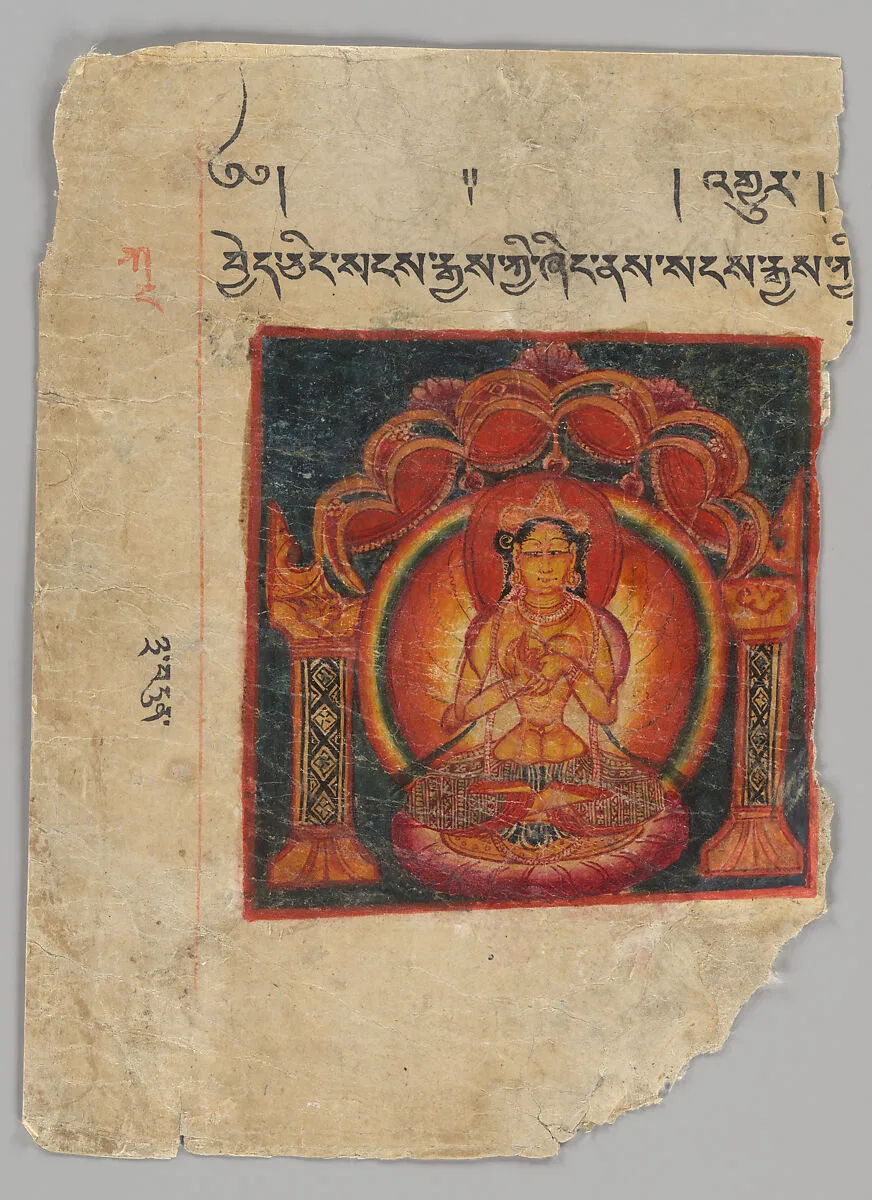 ༄༅། ། ། འགྱུར་ །
བྱེད་ཅིང་སངས་རྒྱས་ཀྱི་ཞིང་ནས་སངས་རྒྱས་ཀྱི